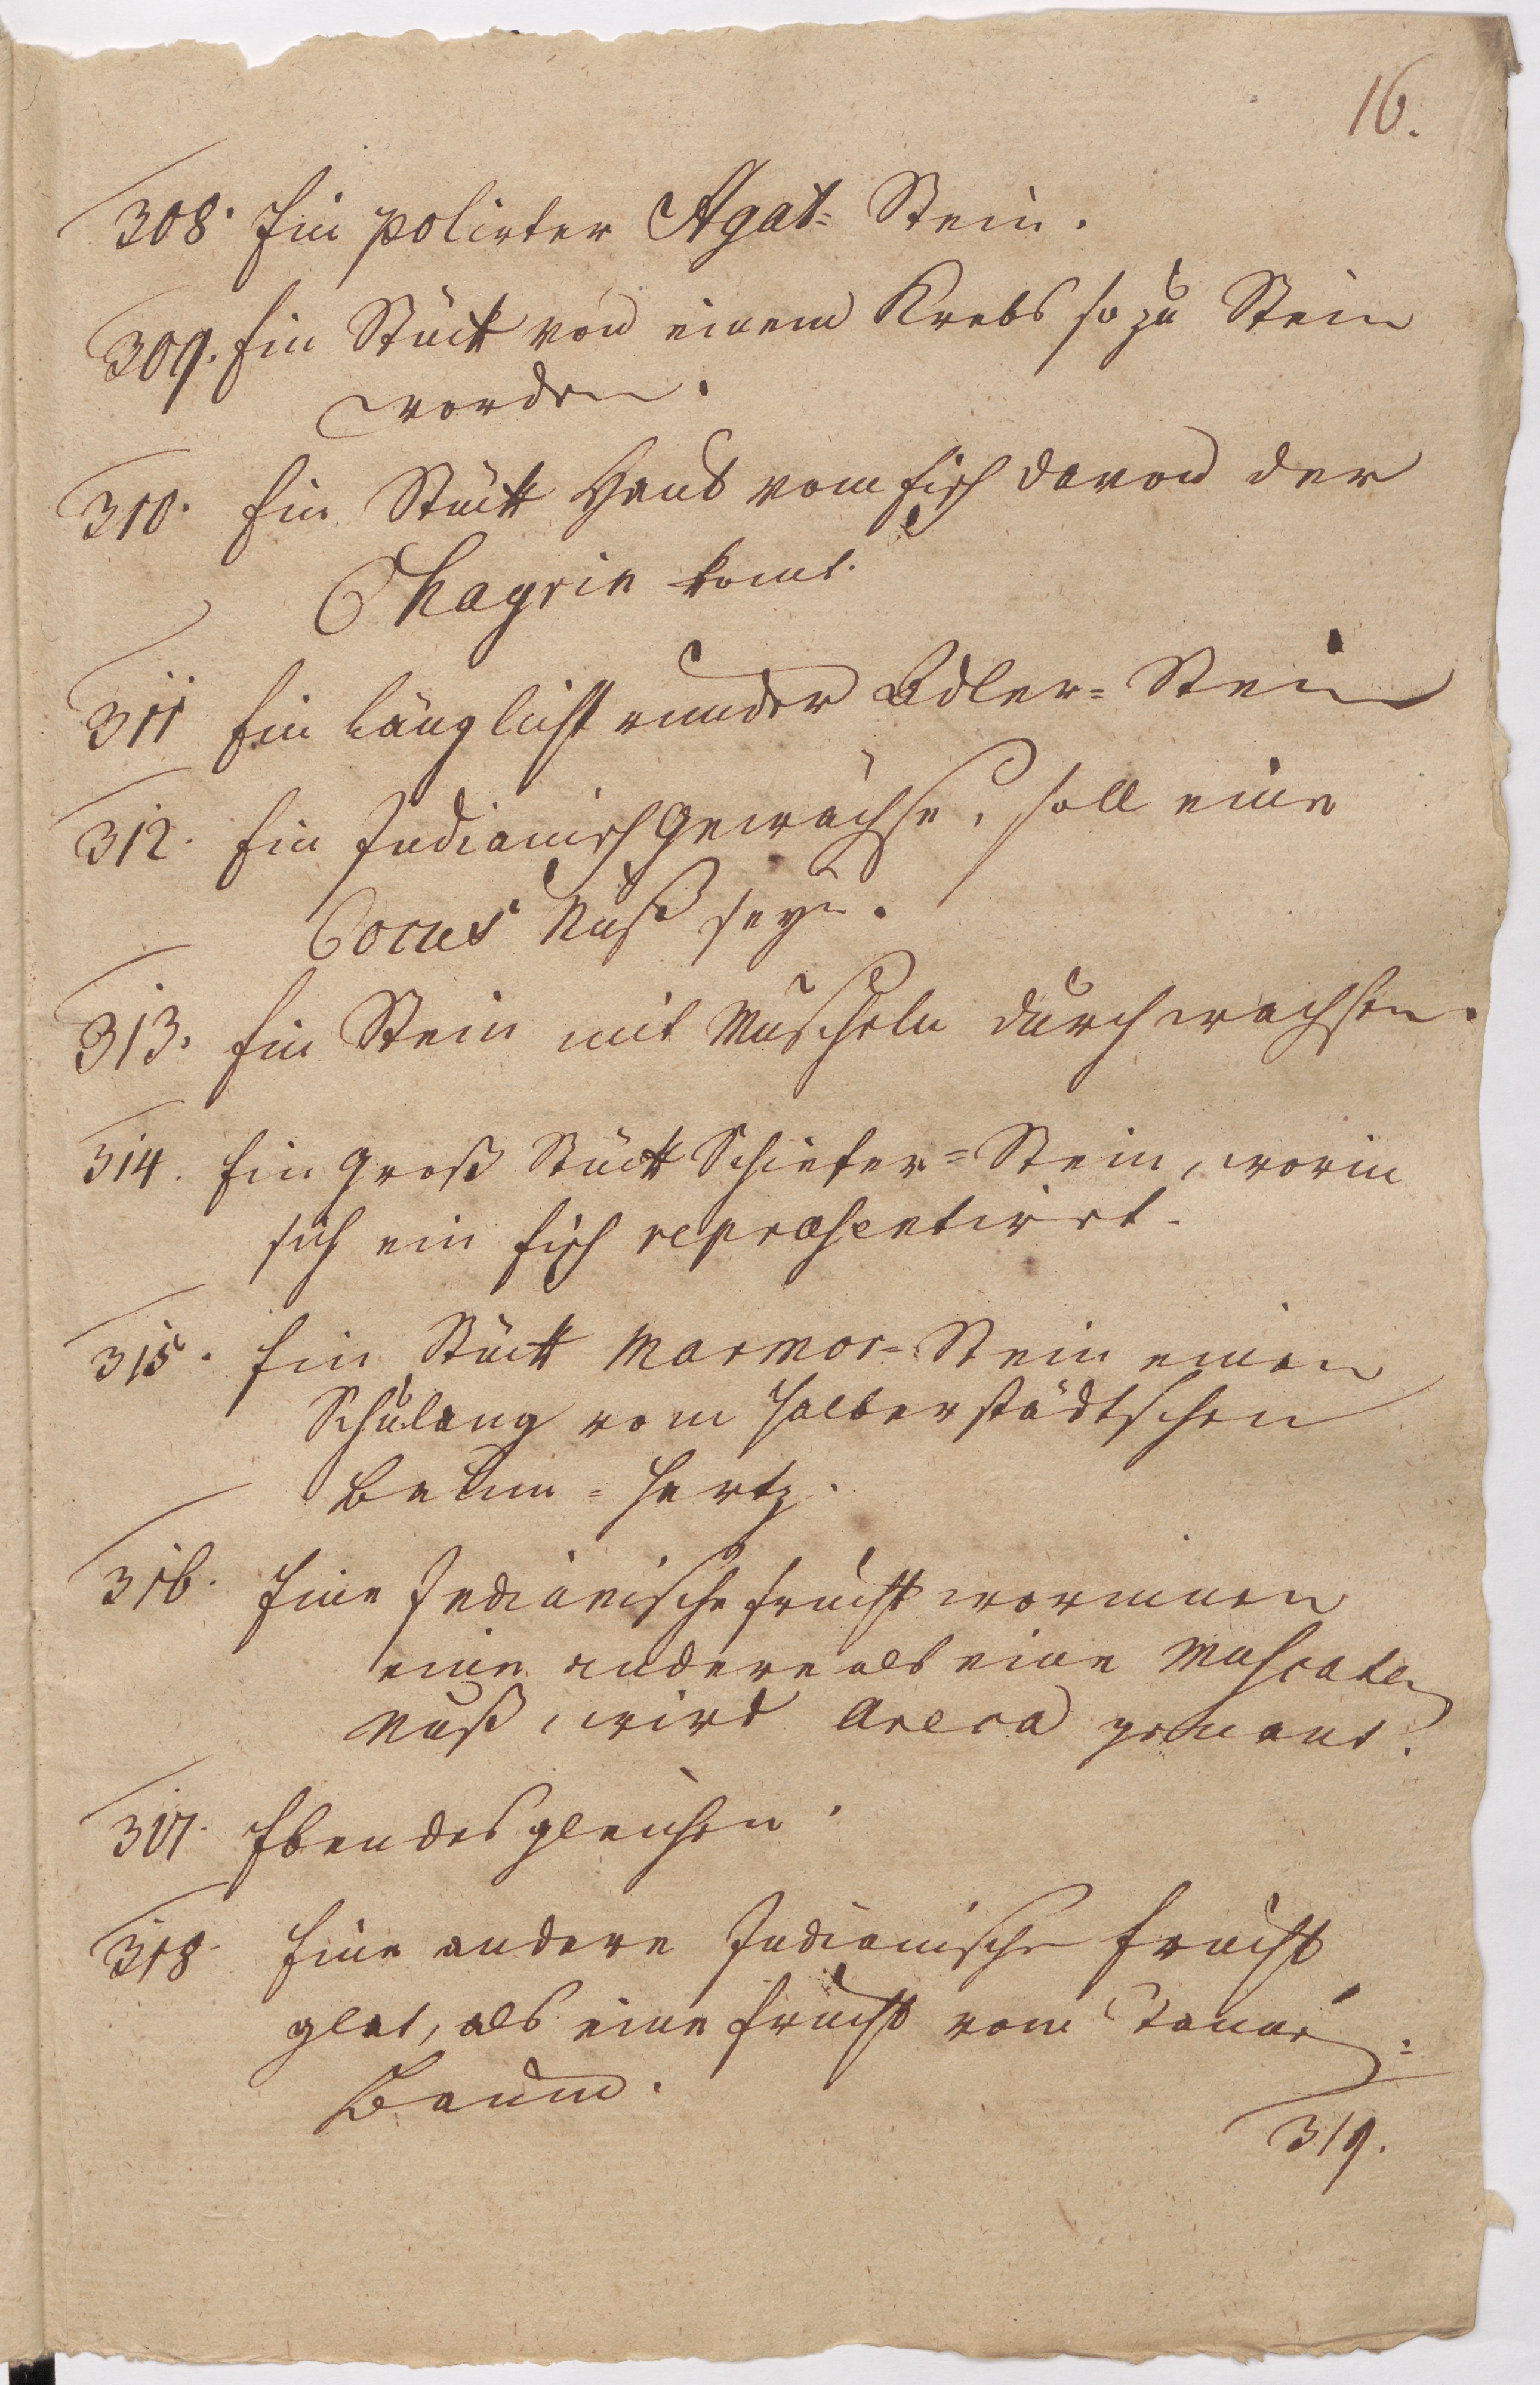 16.
308. Ein polirter Agat= Stein.
309. Ein Stück von einem Krebs so zu Stein
worden.
310. Ein Stück Haut vom Fisch davon der
Chagrin komt.
311 Ein länglicht runder Adler= Stein
312. Ein Indianisch Gewächse, soll eine
Cocus Nuß seyn.
313. Ein Stein mit Muscheln durchwachsen.
314. Ein groß Stück Schiefer= Stein, worin
sich ein Fisch repraesentirt.
315. Ein Stück Marmor= Stein einen
lang vom Halberstädtschen
= Hartz.
316. Eine Indianische Frucht worinnen
eine andere als eine Muscaten
Nuß, wird Areca genant.
317. Eben desgleichen.
318. Eine andere Indianische Frucht
glat, als eine Frucht vom =
Baum.
319.